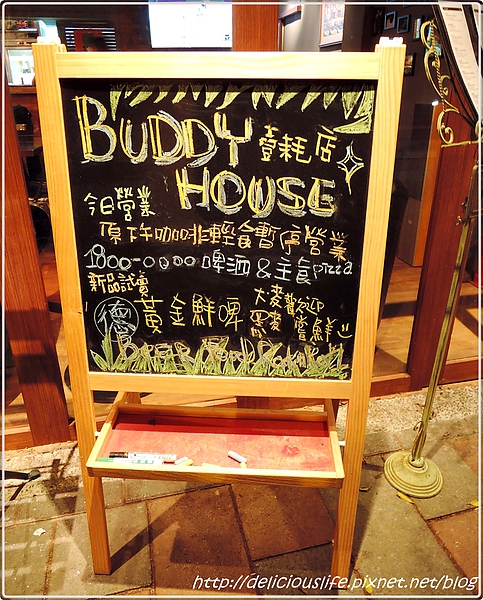 BUDDY 壹耗店
HOUSE
今日營業
原下午咖啡輕食暫停營業
1800-0000 啤酒 & 主食 pizza
新品試賣
德 黃金鮮啤 大麥 歡迎
黑麥 嘗鮮
http://deliciouslife.pixnet.net/blog